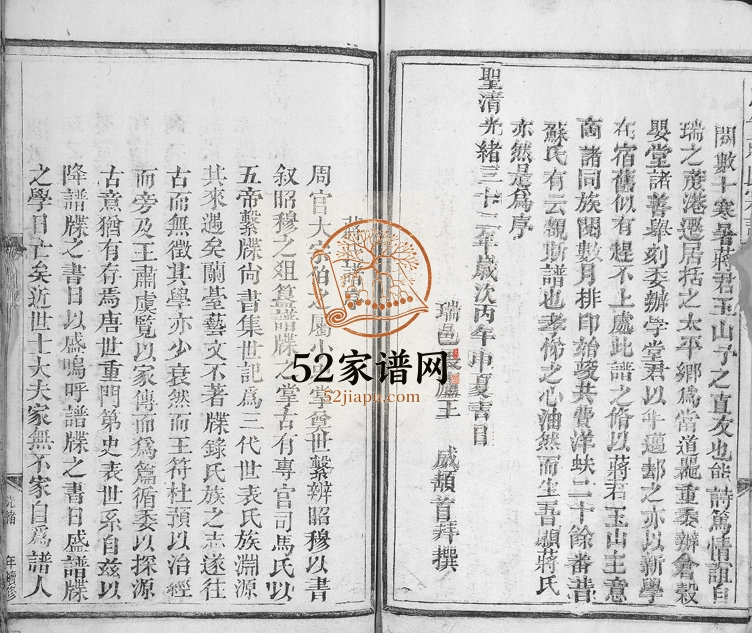 閱數十寒暑蔣君玉山予之直友也能詩篤情誼自
瑞之蔗港遷居括之太平鄉為當道器重委辦倉穀
嬰堂諸善舉刻委辦學堂君以年邁却之亦以新學
在宿舊似有趕不上處此譜之脩以蔣君玉山主意
商諸同族閱數月排印始竣共費洋蚨二十餘番昔
蘇氏有云觀斯譜也孝悌之心油然而生吾願蔣氏
亦然是為序
聖清光緒三十二年歲次丙午中夏吉日
瑞邑 王 咸頴首拜撰
周官大宗伯之屬小史掌奠世繫辨昭穆以書
叙昭穆之俎簋譜牒之掌古有專官司馬氏以
五帝繫牒尚書集世記為三代世表氏族淵源
其來遠矣蘭臺藝文不著牒錄氏族之志遂往
古而無徵其學亦少衰然而王符杜預以治經
而旁及王肅虞覽以家傳而為篇循委以探源
古意猶有存焉唐世重門第史表世系自茲以
降譜牒之書日以盛嗚呼譜牒之書日盛譜牒
之學日亡矣近世士大夫家無不家自為譜人
光緒 年續修
52家谱网
52jiapu.com